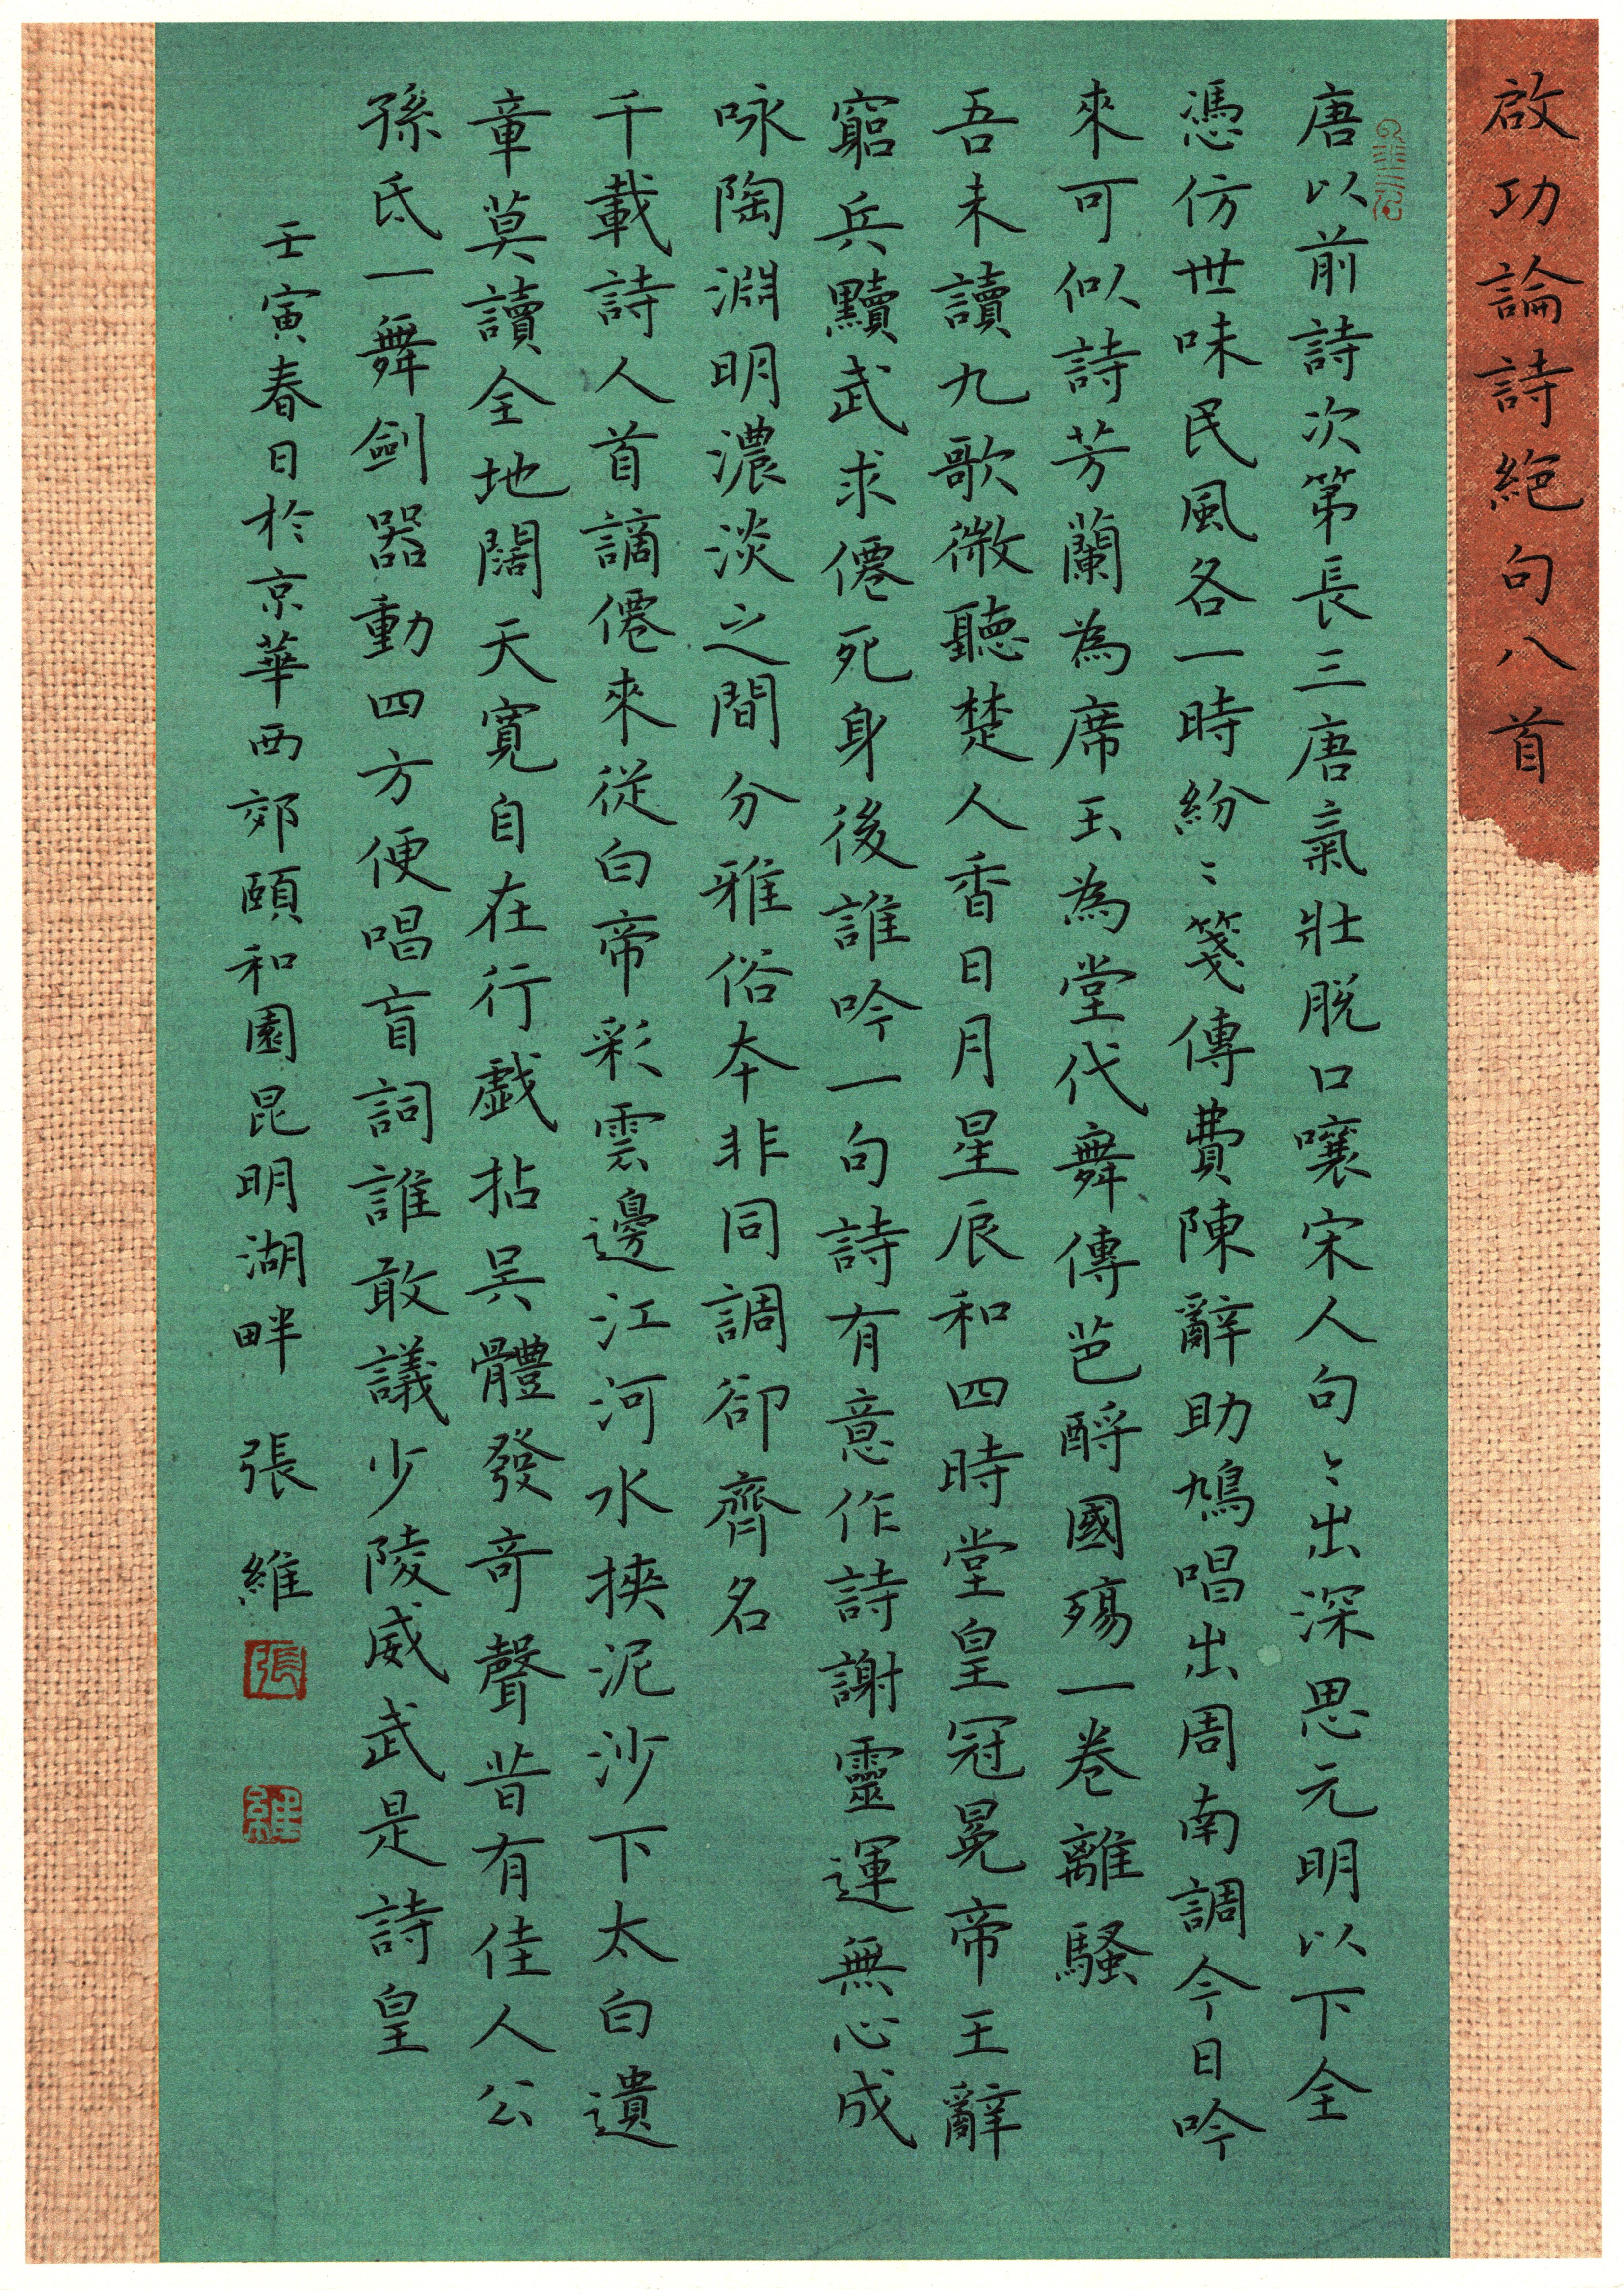 啟功論詩絕句八首
唐以前詩次第長三唐氣壯脫口嚷宋人句〻出深思元明以下全
憑仿世味民風各一時紛〻箋傳費陳辭助鳩唱出周南調今日吟
來可似詩芳蘭為席玉為堂代舞傳芭酹國殤一卷離騷
吾未讀九歌微聽楚人香日月星辰和四時堂皇冠冕帝王辭
窮兵黷武求僊死身後誰吟一句詩有意作詩謝靈運無心成
咏陶淵明濃淡之間分雅俗本非同調卻齊名
千載詩人首謫僊來從白帝彩雲邊江河水挾泥沙下太白遺
章莫讀全地闊天寬自在行戲拈吳體發奇聲昔有佳人公
孫氏一舞劍器動四方便唱盲詞誰敢議少陵威武是詩皇
壬寅春日於京華西郊頤和園昆明湖畔 張維
張
維